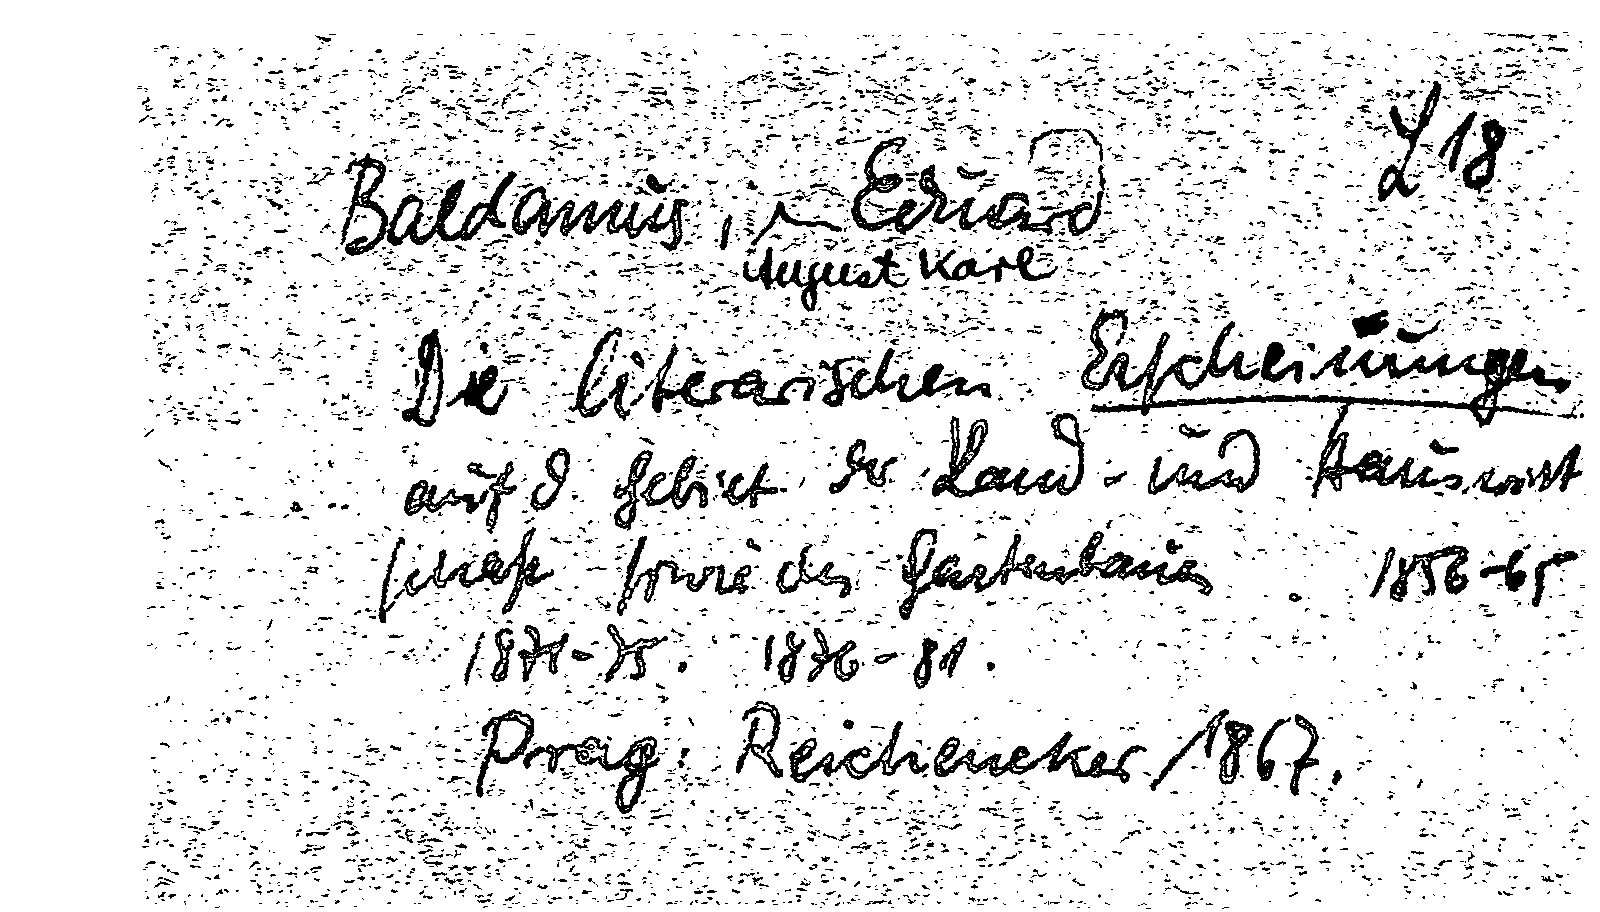 L 18
Baldamus, Eduard
August Karl
Die literarischen Erscheinungen
auf d Gebiet der Land- und Hauswirt
schaft sowie des Gartenbaues. 1856-65
1871-75. 1876-81.
Prag: Reichenecker 1867.